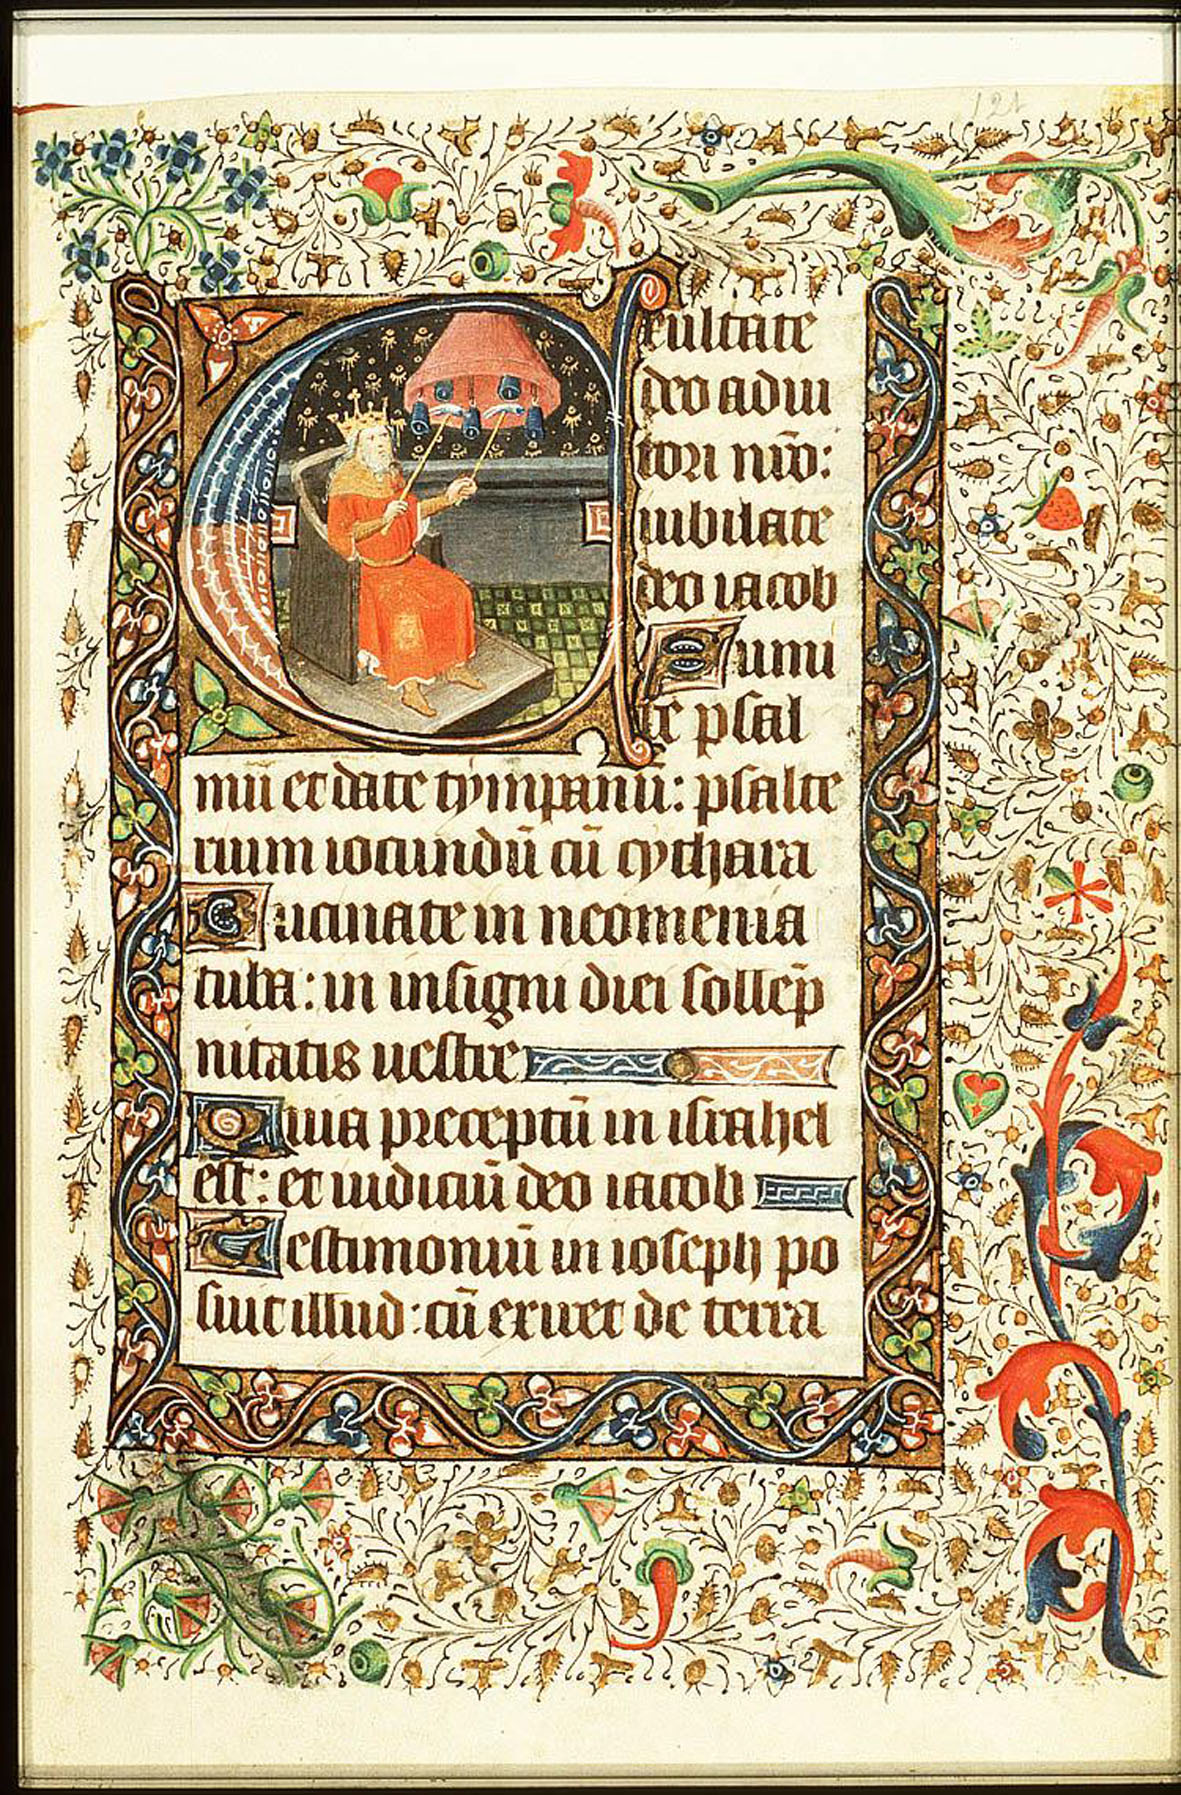 121
Exultate
deo adiu
tori nr̄o:
iubilate
deo iacob
Sumi
te psal
mū et date tympanū: psalte
rium iocundū cū cythara
Bucinate in neomenia
tuba: in insigni diei sollēp
nitatis uestre
Quia preceptū in israhel
est: et iudiciū deo iacob
Testimoniū in ioseph po
suit illud: cū exiret de terra